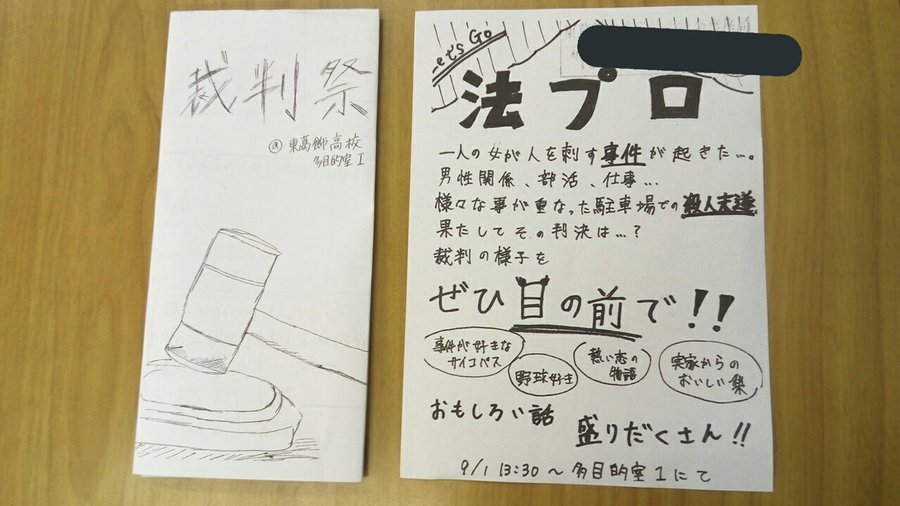 裁判祭
@東葛飾高校
多目的室I
Let's Go
法プロ
一人の女が人を刺す事件が起きた…。
男性関係、部活、仕事…
様々な事が重なった駐車場での殺人未遂
果たしてその判決は…?
裁判の様子を
ぜひ目の前で!!
事件が好きな
サイコパス
野球好き
熱い恋の
物語
実家からの
おいしい梨
おもしろい話
盛りだくさん!!
9/1 13:30～多目的室Iにて